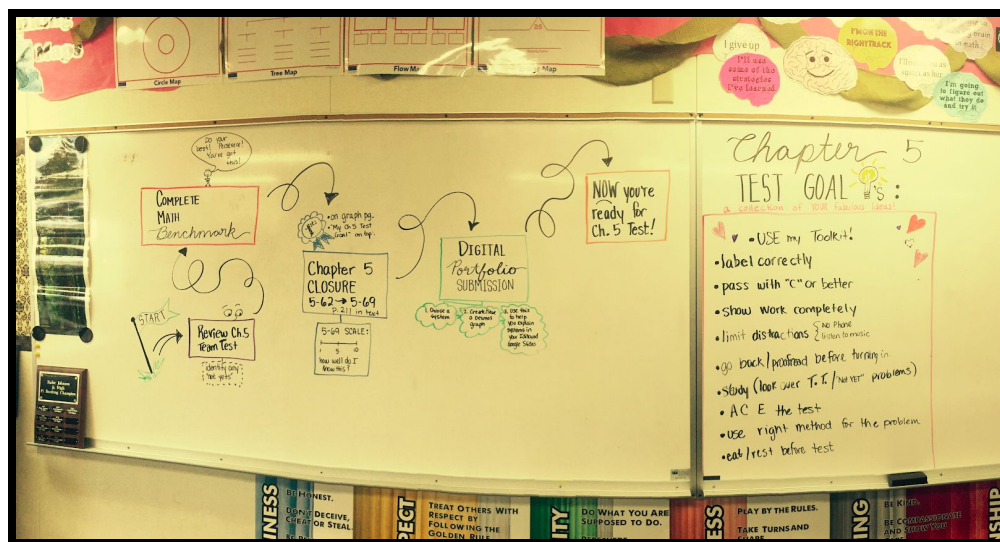 Circle Map
Tree Map
Flow
Map
I give up
I'll use
some of the
strategies
I've learned
I'M ON THE
RIGHT TRACK
I'm going
to figure out
what they do
and try it
Do your
best! Persevere!
You've got
this!
COMPLETE
MATH
Benchmark
START
Review Ch.5
Team Test
identify any
"not yets"
on graph pg.
"My Ch 5 Test
Goal" on top.
Chapter 5
CLOSURE
5-62 → 5-69
P. 211 in text
5-69 SCALE:
1 5 10
how well do I
know this?
DIGITAL
Portfolio
SUBMISSION
1. Choose a
system
2. Create/Save
a Desmos
graph
3. Use this
to help
you explain
systems in
your
Google Slides
NOW you're
ready for
Ch. 5 Test!
Chapter 5
TEST GOAL 's:
a collection of YOUR fabulous ideas!
• USE my Toolkit!
• label correctly
• pass with "C" or better
• show work completely
• limit distractions { No Phone
listen to music
• go back/proofread before turning in
• study (look over T.T./"Not YET" problems)
• A C E the test
• use right method for the problem
• eat/rest before test
INESS
BE HONEST.
DON'T DECEIVE,
CHEAT OR STEAL.
PECT
TREAT OTHERS WITH
RESPECT BY
FOLLOWING THE
GOLDEN RULE.
ITY
DO WHAT YOU ARE
SUPPOSED TO DO.
ESS
PLAY BY THE RULES.
TAKE TURNS AND
SHARE.
ING
BE KIND.
BE COMPASSIONATE
AND SHOW YOU
SHIP